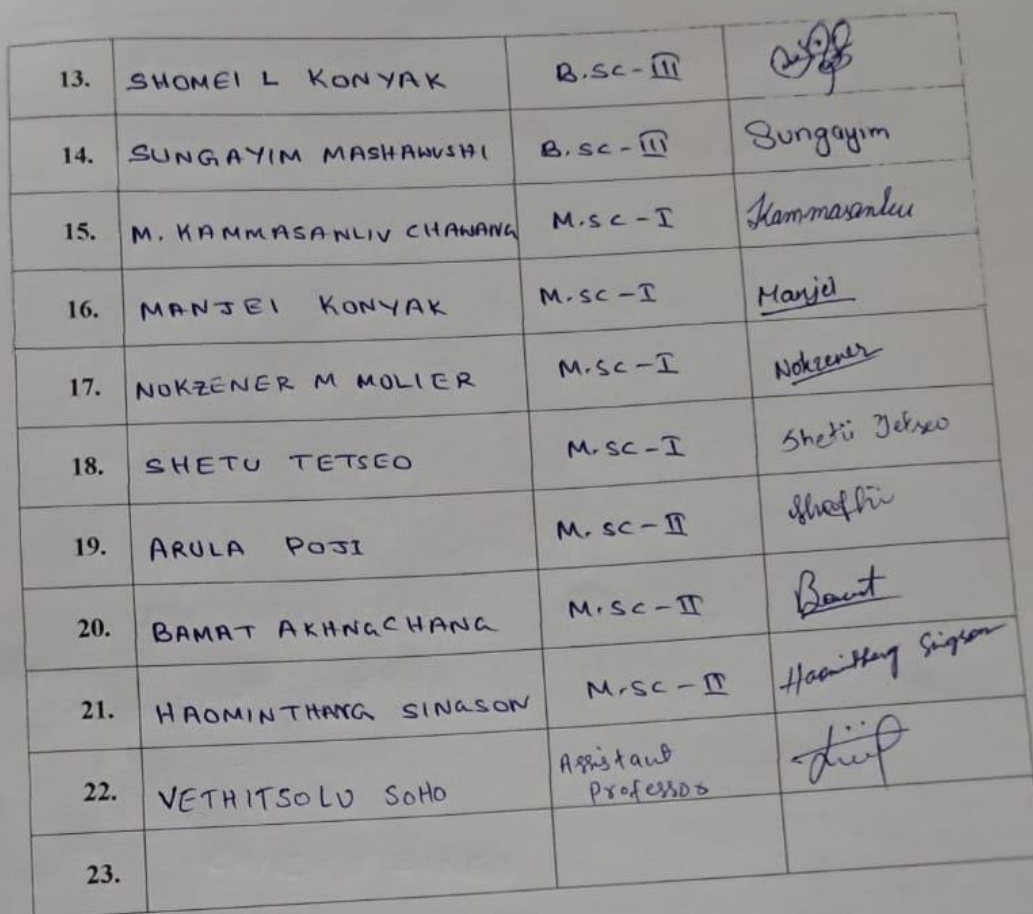 13. SHOMEI L KONYAK B.SC-III
14. SUNGAYIM MASHANUSHI B.SC-III Sungayim
15. M. KAMMASANLIU CHAWANG M.SC-I Kammasanliu
16. MANJEI KONYAK M.SC-I Manjei
17. NOKZENER M MOLIER M.SC-I Nokzener
18. SHETU TETSEO M.SC-I Shetü Tetseo
19. ARULA POJI M.SC-II
20. BAMAT AKHNGCHANG M.SC-II Bamat
21. HAOMINTHANG SINGSON M.SC-II Haominthang Singson
22. VETHITSOLU SOHO Assistant
Professor
23.